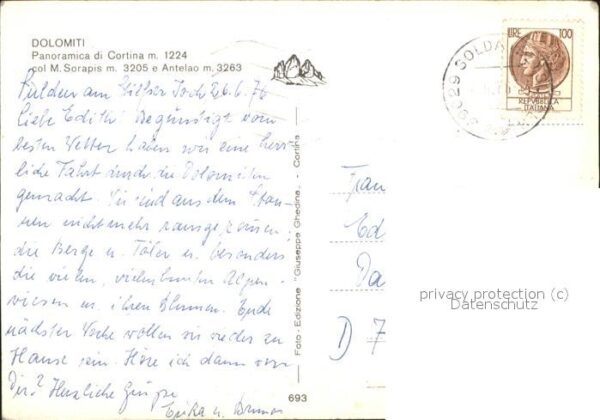 DOLOMITI
Panoramica di Cortina m. 1224
col M. Sorapis m. 3205 e Antelao m. 3263
Sulden am 26.6.76
liebe Edith! Begünstigt vom
besten Wetter haben wir eine herr-
liche Fahrt durch die Dolomiten
gemacht. Wir sind aus dem Stau-
nen nicht mehr rausgekommen,
die Berge u. Täler u. besonders
die vielen, vielen bunten Alpen-
wiesen m. ihren Blumen. Ende
nächster Woche wollen wir wieder zu
Hause sein. Höre ich dann von
Dir? Herzliche Grüße
Erika u. Bruno
Foto - Edizione - Giuseppe Ghedina - Cortina
693
LIRE 100
REPVBBLICA
ITALIANA
39029 SOLDA
Frau
Ed
Da
D 7
privacy protection (c)
Datenschutz